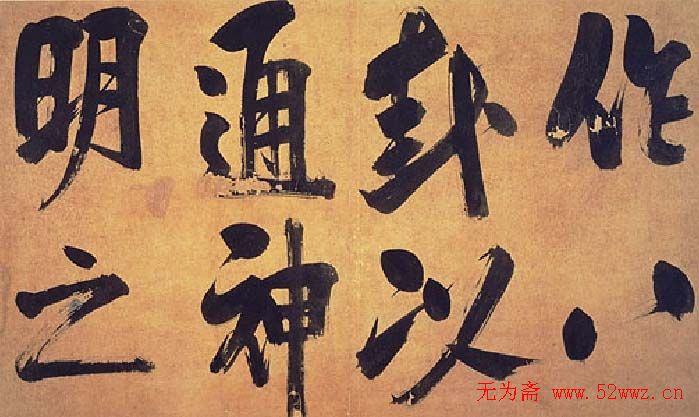 作八
卦以
通神
明之
无为斋 www.52wwz.cn